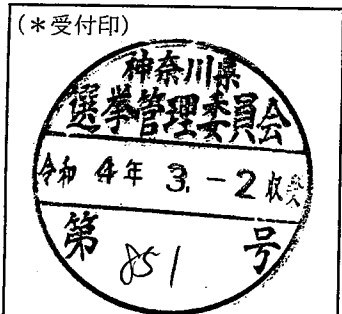 (＊受付印)
神奈川県
選挙管理委員会
令和 4年 3.-2 収受
第 851 号